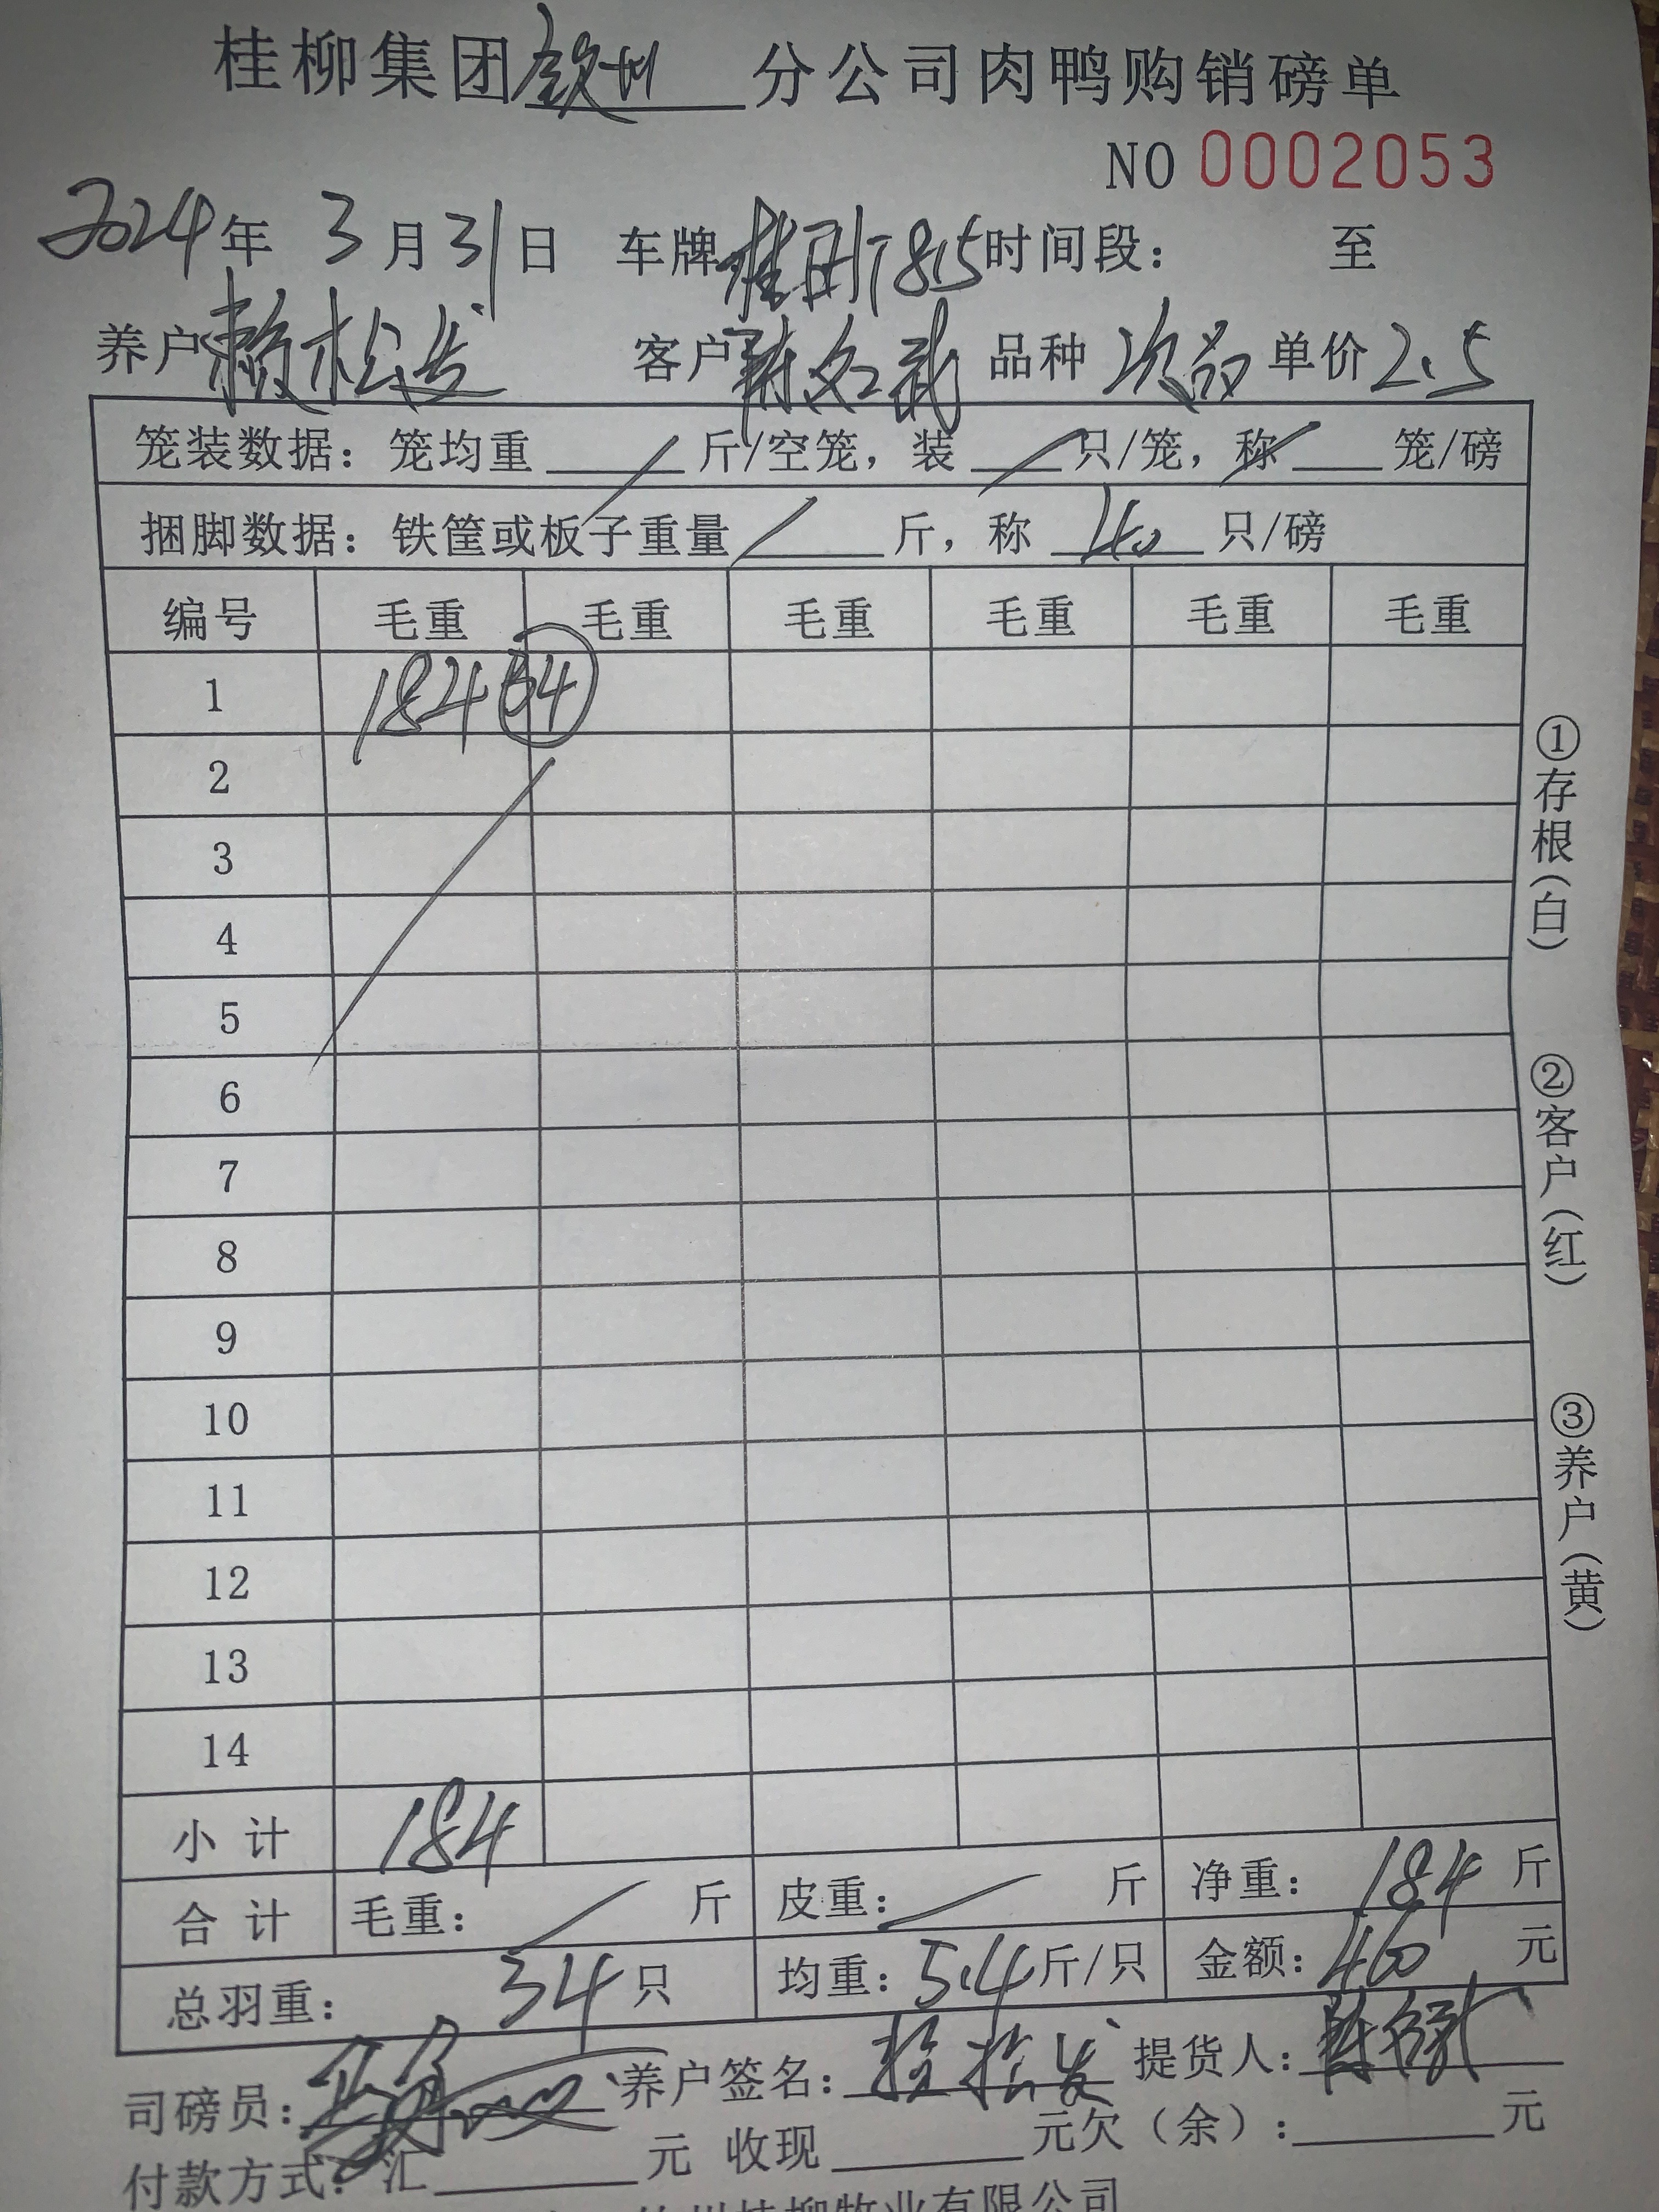 桂柳集团钦州分公司肉鸭购销磅单
NO 0002053
2024年 3月31日 车牌桂 815时间段： 至
养户赖松发 客户陈文武 品种 次品 单价2.5
笼装数据：笼均重 / 斤/空笼，装 / 只/笼，称 / 笼/磅
捆脚数据：铁筐或板子重量 / 斤，称 40 只/磅
编号 毛重 毛重 毛重 毛重 毛重 毛重
1 184 34
2
3
4
5
6
7
8
9
10
11
12
13
14
小计 184
合计 毛重： / 斤 皮重： / 斤 净重：184斤
总羽重： 34只 均重：5.4斤/只 金额：460 元
①存根（白）
②客户（红）
③养户（黄）
司磅员： 养户签名： 松发 提货人：陈
付款方式：汇 元 收现 元欠（余）： 元
钦州桂柳牧业有限公司